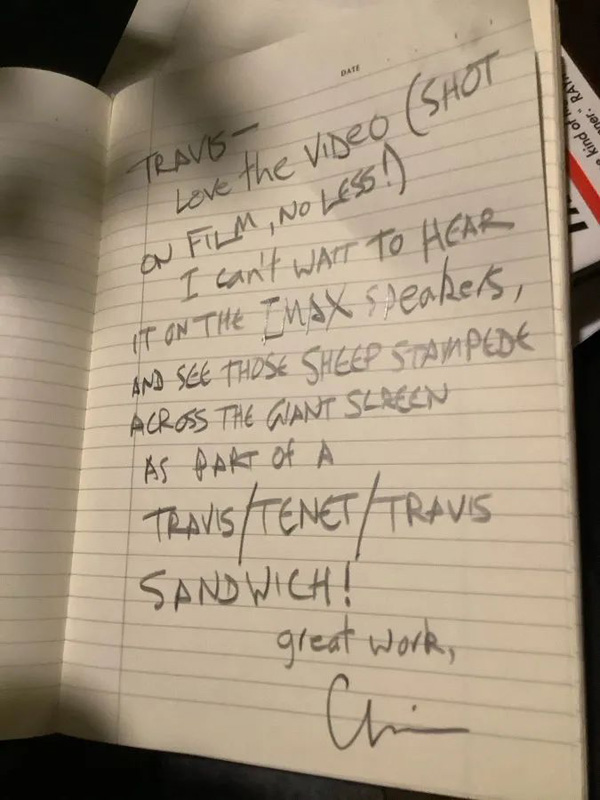 DATE
TRAVIS—
LOVE the VIDEO (SHOT
ON FILM, NO LESS!)
I can't WAIT TO HEAR
IT ON THE IMAX speakers,
AND SEE THOSE SHEEP STAMPEDE
ACROSS THE GIANT SCREEN
AS PART Of A
TRAVIS/TENET/TRAVIS
SANDWICH!
great work,
Chris
kind of